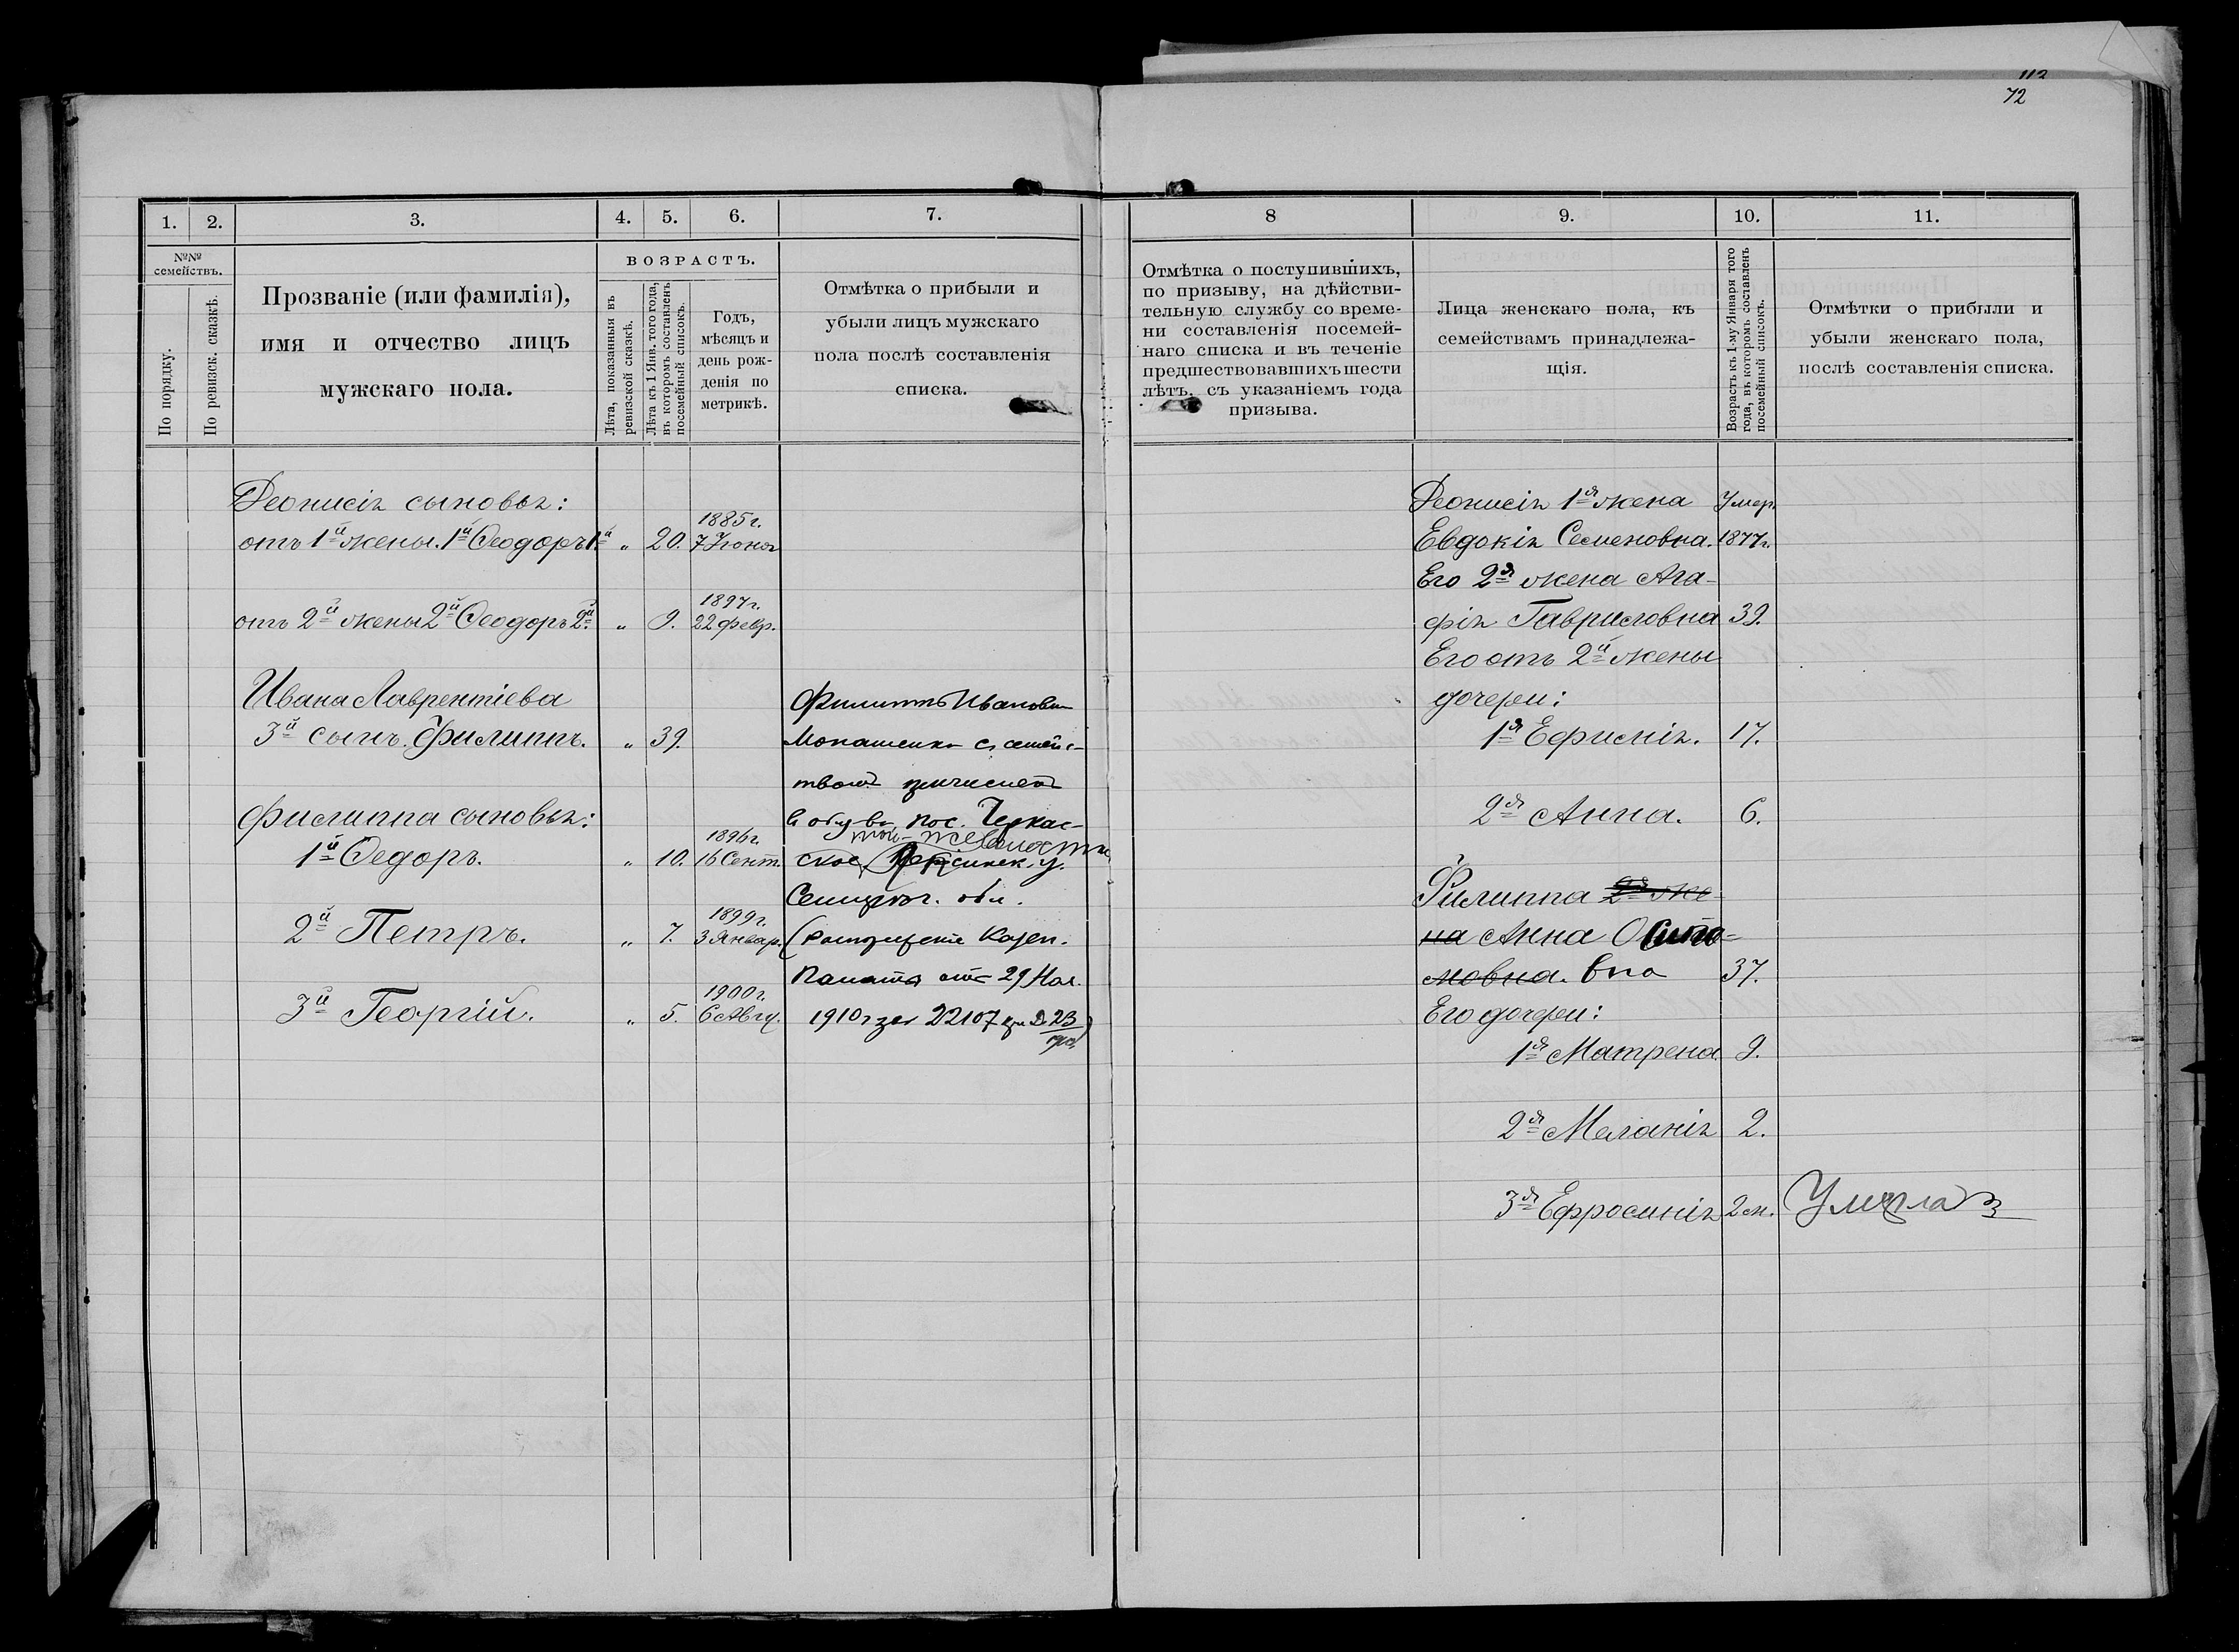 112
72
1. 2. 3. 4. 5. 6. 7.
№№ семействъ.
По порядку.
По ревизск. сказкѣ.
Прозваніе (или фамилія),
имя и отчество лицъ
мужскаго пола.
ВОЗРАСТЪ.
Лѣта, показанныя въ
ревизской сказкѣ.
Лѣта къ 1 Янв. того года,
въ которомъ составленъ
посемейный списокъ.
Годъ,
мѣсяцъ и
день рож-
денія по
метрикѣ.
Отмѣтка о прибыли и
убыли лицъ мужскаго
пола послѣ составленія
списка.
Деонисія сыновья:
1885 г.
отъ 1й жены. 1й Ѳеодоръ 1й „ 20. 7 Іюня
1897 г.
отъ 2й жены 2й Ѳеодоръ 2й. „ 9. 22 февр.
Ивана Лаврентіева
3й сынъ. Филиппъ. „ 39.
Филиппа сыновья:
1896 г.
1й Ѳедоръ. „ 10. 16 Сент.
1899 г.
2й Петръ. „ 7. 3 Январ.
1900 г.
3й Георгій. „ 5. 6 Авгу.
Филиппъ Иванович
Монашенко съ семейс-
твомъ причисленъ
въ общ-во пос. Черкас-
той-же волости
ское у.
обл.
(Распоряженіе Казен.
Палаты отъ 29 Ноя.
1910 г за № 22107
8 9. 10. 11.
Отмѣтка о поступившихъ,
по призыву, на дѣйстви-
тельную службу со време-
ни составленія посемей-
наго списка и въ теченіе
предшествовавшихъ шести
лѣтъ, съ указаніемъ года
призыва.
Лица женскаго пола, къ
семействамъ принадлежа-
щія.
Возрастъ къ 1-му Января того
года, въ которомъ составленъ
посемейный списокъ.
Отмѣтки о прибыли и
убыли женскаго пола,
послѣ составленія списка.
Деонисія 1я жена Умер.
Евдокія Семеновна. 1877 г.
Его 2я жена Ага-
фія Гавриловна 39.
Его отъ 2й жены
дочери:
1я Ефисмія. 17.
2я Анна. 6.
Филиппа 2я же-
на Анна Осипо-
вна 37.
Его дочери:
1я Матрена 9.
2я Меланія 2.
3я Ефросинія 2 м. Умерла